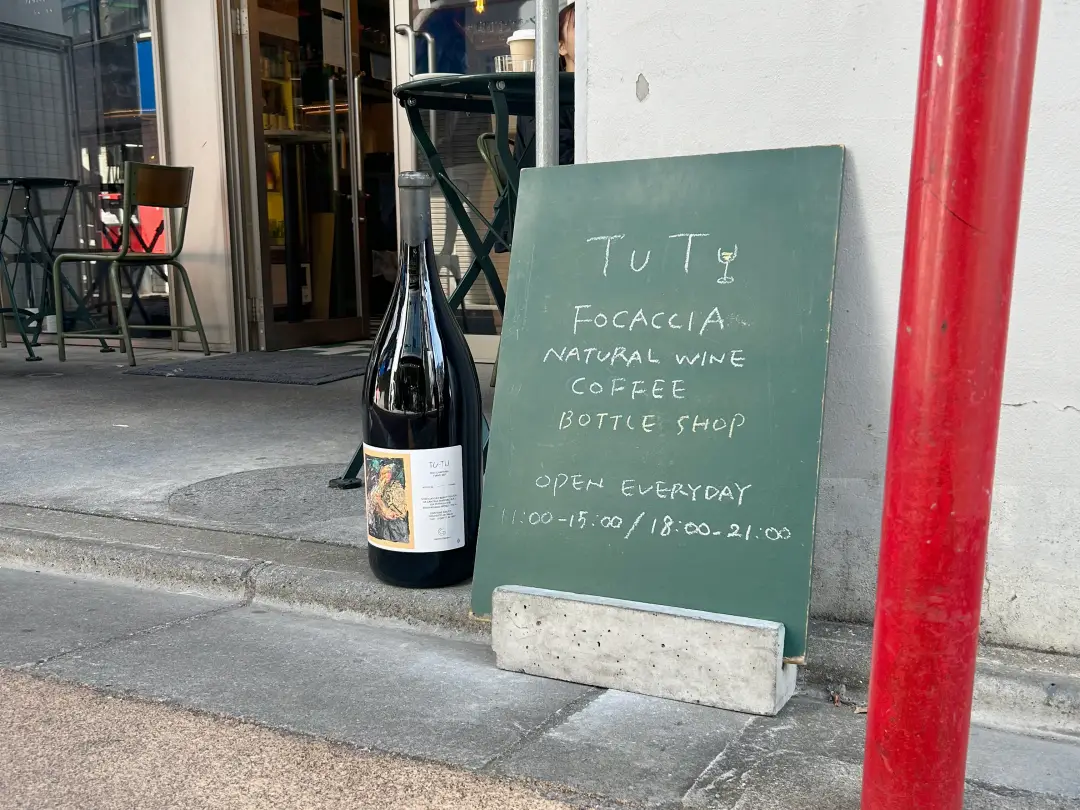 TUTU
FOCACCIA
NATURAL WINE
COFFEE
BOTTLE SHOP
OPEN EVERYDAY
11:00-15:00/18:00-21:00
TU-TU